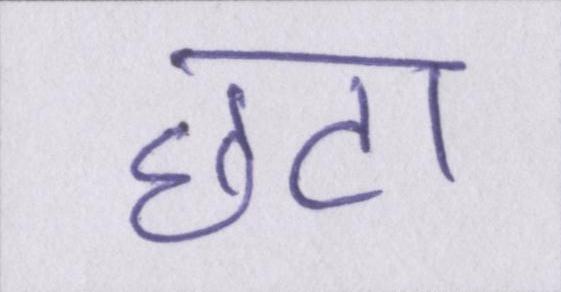 छटा